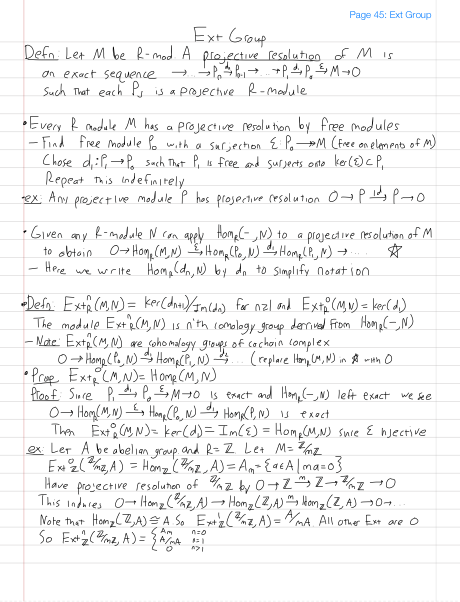 Page 45: Ext Group
Ext Group
Defn: Let M be R-mod. A projective resolution of M is
an exact sequence → ... → Pₙ →^{dₙ} Pₙ₋₁ → ... → P₁ →^{d₁} P₀ →^{ε} M → 0
such that each Pⱼ is a projective R-module
• Every R module M has a projective resolution by free modules
– Find Free module P₀ with a surjection ε: P₀ ↠ M (free on elements of M)
Chose d₁: P₁ → P₀ such that P₁ is free and surjects onto ker(ε) ⊂ P₀
Repeat this indefinitely
• ex: Any projective module P has projective resolution 0 → P →^{id} P → 0
• Given any R-module N can apply Hom_R(-, N) to a projective resolution of M
to obtain 0 → Hom_R(M,N) →^{ε} Hom_R(P₀,N) →^{d₁} Hom_R(P₁,N) → ... ☆
– Here we write Hom_R(dₙ,N) by dₙ to simplify notation
• Defn: Ext_R^n(M,N) = ker(dₙ₊₁)/Im(dₙ) for n≥1 and Ext_R^0(M,N) = ker(d₁)
The module Ext_R^n(M,N) is n'th comology group derived from Hom_R(-,N)
– Note: Ext_R^n(M,N) are cohomology groups of cochain complex
0 → Hom_R(P₀,N) →^{d₁} Hom_R(P₁,N) →^{d₂} ... (replace Hom_R(M,N) in ☆ with 0
• Prop: Ext_R^0(M,N) = Hom_R(M,N)
Proof: Since P₁ →^{d₁} P₀ →^{ε} M → 0 is exact and Hom_R(-,N) left exact we see
0 → Hom_R(M,N) →^{ε} Hom_R(P₀,N) →^{d₁} Hom_R(P₁,N) is exact
Then Ext_R^0(M,N) = ker(d₁) = Im(ε) = Hom_R(M,N) since ε injective
ex: Let A be abelian group and R = ℤ. Let M = ℤ/mℤ
Ext_ℤ^0(ℤ/mℤ, A) = Hom_ℤ(ℤ/mℤ, A) = A_m = {a∈A | ma=0}
Have projective resolution of ℤ/mℤ by 0 → ℤ →^{m} ℤ → ℤ/mℤ → 0
This induces 0 → Hom_ℤ(ℤ/mℤ, A) → Hom_ℤ(ℤ, A) →^{m} Hom_ℤ(ℤ, A) → 0 → ...
Note that Hom_ℤ(ℤ,A) ≅ A So Ext_ℤ^1(ℤ/mℤ, A) = A/mA All other Ext are 0
So Ext_ℤ^n(ℤ/mℤ, A) = { A_m n=0
A/mA n=1
0 n>1